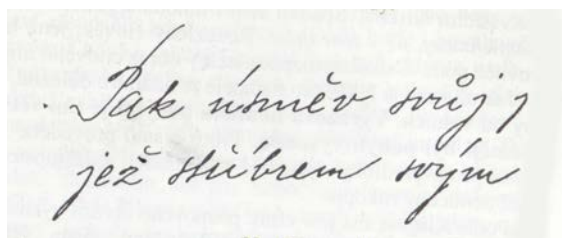 Pak úsměv svůj
jež stříbrem svým